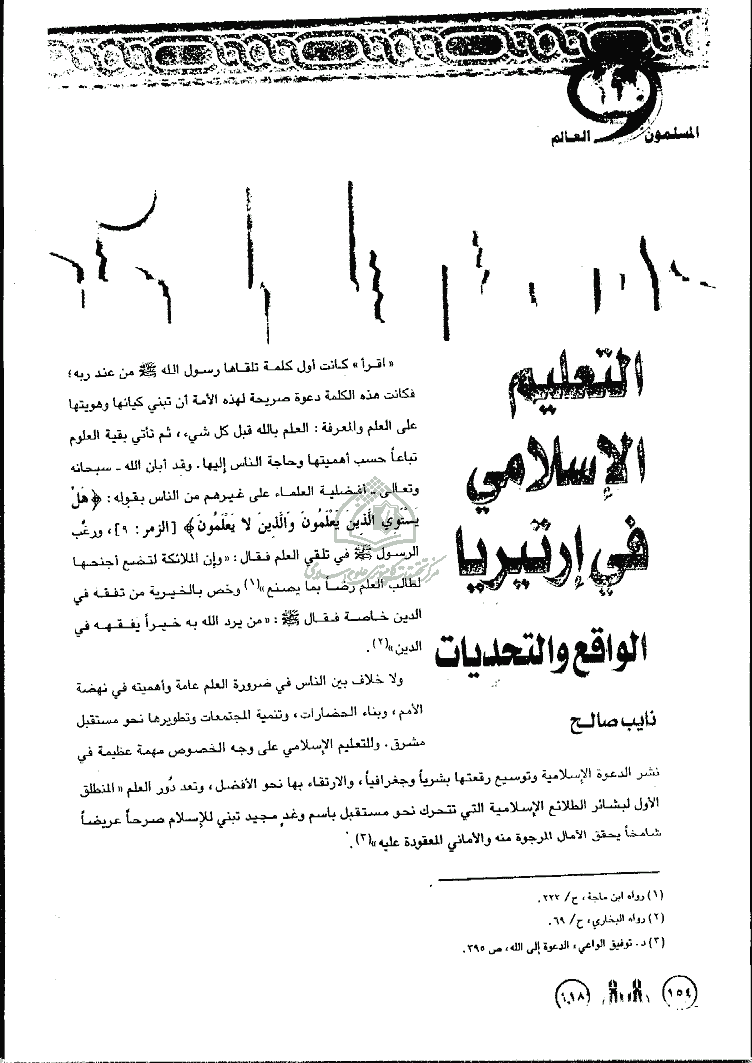 المسلمون و العالم
التعليم
الإسلامي
في إرتيريا
الواقع والتحديات
نايب صالح
« اقرأ » كانت أول كلمة تلقاها رسول الله ﷺ من عند ربه ؛
فكانت هذه الكلمة دعوة صريحة لهذه الأمة أن تبني كيانها وهويتها
على العلم والمعرفة : العلم بالله قبل كل شيء ، ثم تأتي بقية العلوم
تباعاً حسب أهميتها وحاجة الناس إليها . وقد أبان الله ـ سبحانه
وتعالى ـ أفضلية العلماء على غيرهم من الناس بقوله : ﴿ هَلْ
يَسْتَوِي الَّذِينَ يَعْلَمُونَ وَالَّذِينَ لا يَعْلَمُونَ ﴾ [الزمر : ٩] ، ورغَّب
الرسول ﷺ في تلقي العلم فقال : «وإن الملائكة لتضع أجنحها
لطالب العلم رضاً بما يصنع »(١) وخص بالخيرية من تفقه في
الدين خاصة فقال ﷺ : « من يرد الله به خيراً يفقهه في
الدين »(٢) .
ولا خلاف بين الناس في ضرورة العلم عامة وأهميته في نهضة
الأمم ، وبناء الحضارات ، وتنمية المجتمعات وتطويرها نحو مستقبل
مشرق . وللتعليم الإسلامي على وجه الخصوص مهمة عظيمة في
نشر الدعوة الإسلامية وتوسيع رقعتها بشرياً وجغرافياً ، والارتقاء بها نحو الأفضل ، وتعد دُور العلم « المنطلق
الأول لبشائر الطلائع الإسلامية التي تتحرك نحو مستقبل باسم وغدٍ مجيد تبني للإسلام صرحاً عريضاً
شامخاً يحقق الآمال المرجوة منه والأماني المعقودة عليه »(٣) .
(١) رواه ابن ماجة ، ح/ ٢٢٢ .
(٢) رواه البخاري ، ح/ ٦٩ .
(٣) د . توفيق الواعي ، الدعوة إلى الله ، ص ٣٩٥ .
١٥٤